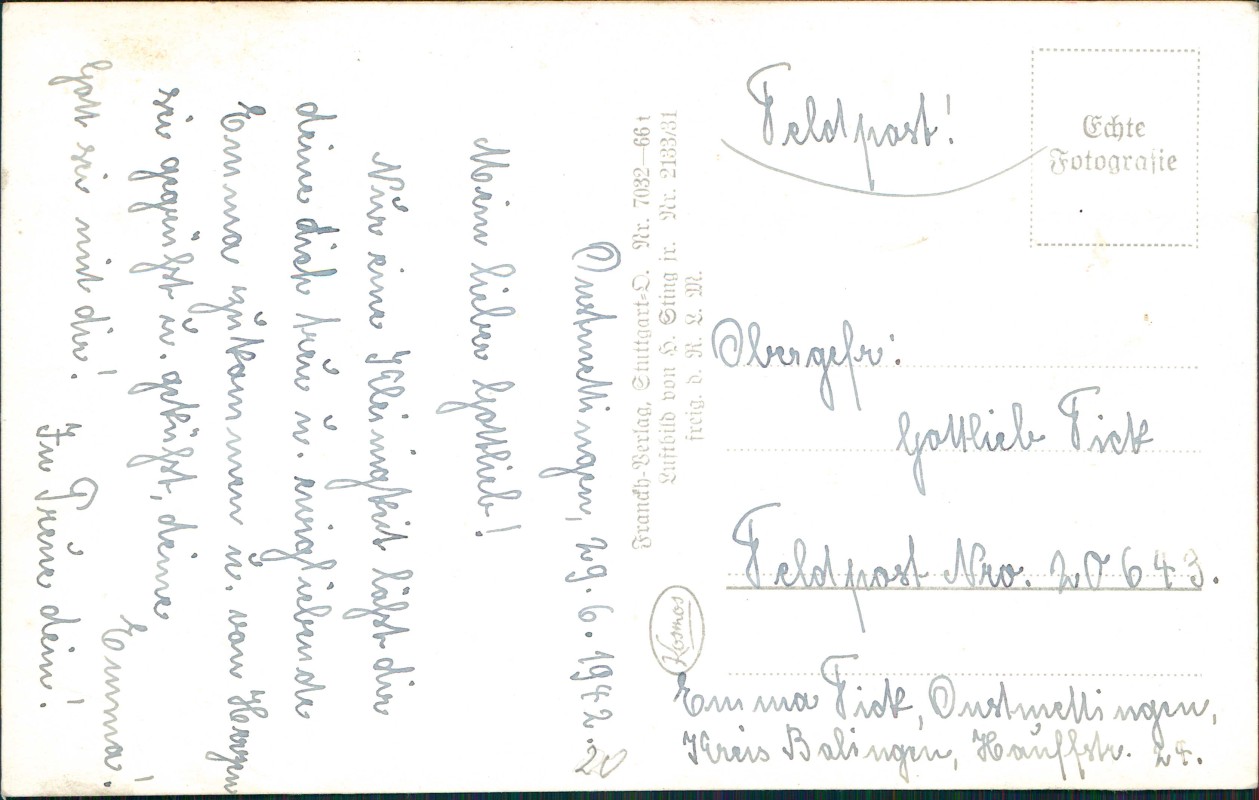 Onstmettingen, 29. 6. 1942.
20
Mein lieber Gottlieb!
Nur eine Kleinigkeit läßt dir
deine dich treu u. ewigliebende
Emma zukommen u. von Herzen
sei gegrüßt u. geküßt, deine
Emma!
Gott sei mit dir!
In Treue dein!
Franckh-Verlag, Stuttgart-O. Nr. 7032—66 t
Luftbild von H. Sting jr. Nr. 2133/31
freig. d. R. L. M.
Kosmos
Feldpost!
Echte
Fotografie
Obergefr:
Gottlieb Fick
Feldpost Nro. 20643.
Emma Fick, Onstmettingen,
Kreis Balingen, Hauffstr. 24.